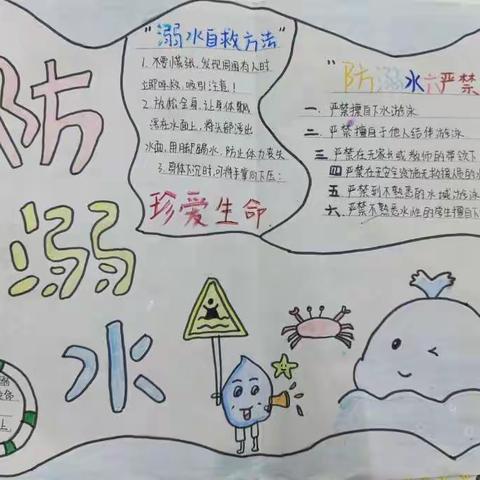 防
溺
水
"溺水自救方法"
1. 不要慌张,发现周围有人时
立即呼救,吸引注意!
2. 放松全身,让身体飘
浮在水面上,将头部浮出
水面,用脚踢水,防止体力丧失
3. 身体下沉时,可将手掌向下压;
珍爱生命
"防溺水六严禁
一、严禁擅自下水游泳
二、严禁擅自于他人结伴游泳
三、严禁在无家长或教师的带领下
四 严禁在无安全设施无救援人员的水
五、严禁到不熟悉的水域游泳
六、严禁不熟悉水性的学生擅自下
上